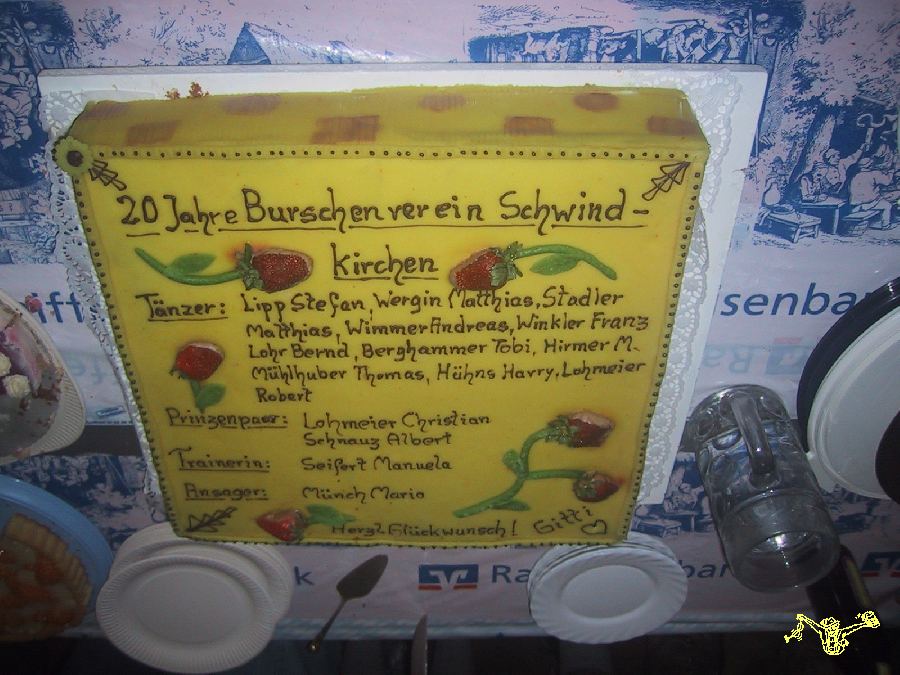 20 Jahre Burschenverein Schwind-
kirchen
Tänzer: Lipp Stefan, Wergin Matthias, Stadler
Matthias, Wimmer Andreas, Winkler Franz
Lohr Bernd, Berghammer Tobi, Hirmer M.
Mühlhuber Thomas, Hühns Harry, Lohmeier
Robert
Prinzenpaar: Lohmeier Christian
Schnauz Albert
Trainerin: Seifert Manuela
Ansager: Münch Mario
Herzl. Glückwunsch! Gitti
senban